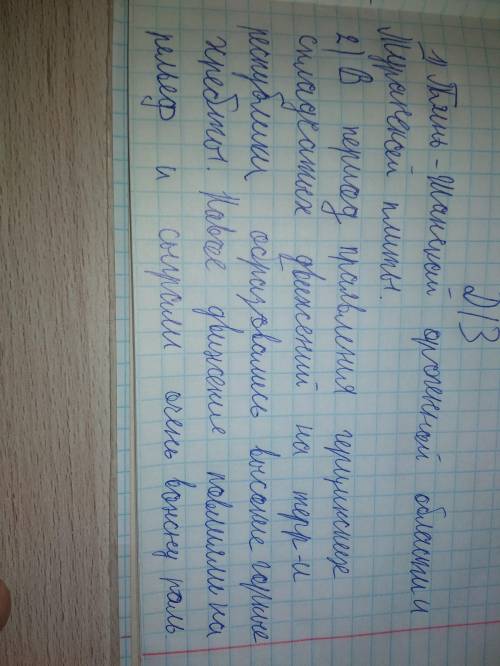 Д/З
1) Тянь-Шанской орогенной области и
Туранской плиты.
2) В период проявления герцинских
складчатых движений на терр-и
республики образовались высокие горные
хребты. Новое движение повлияли на
рельеф и сыграли очень важну роль